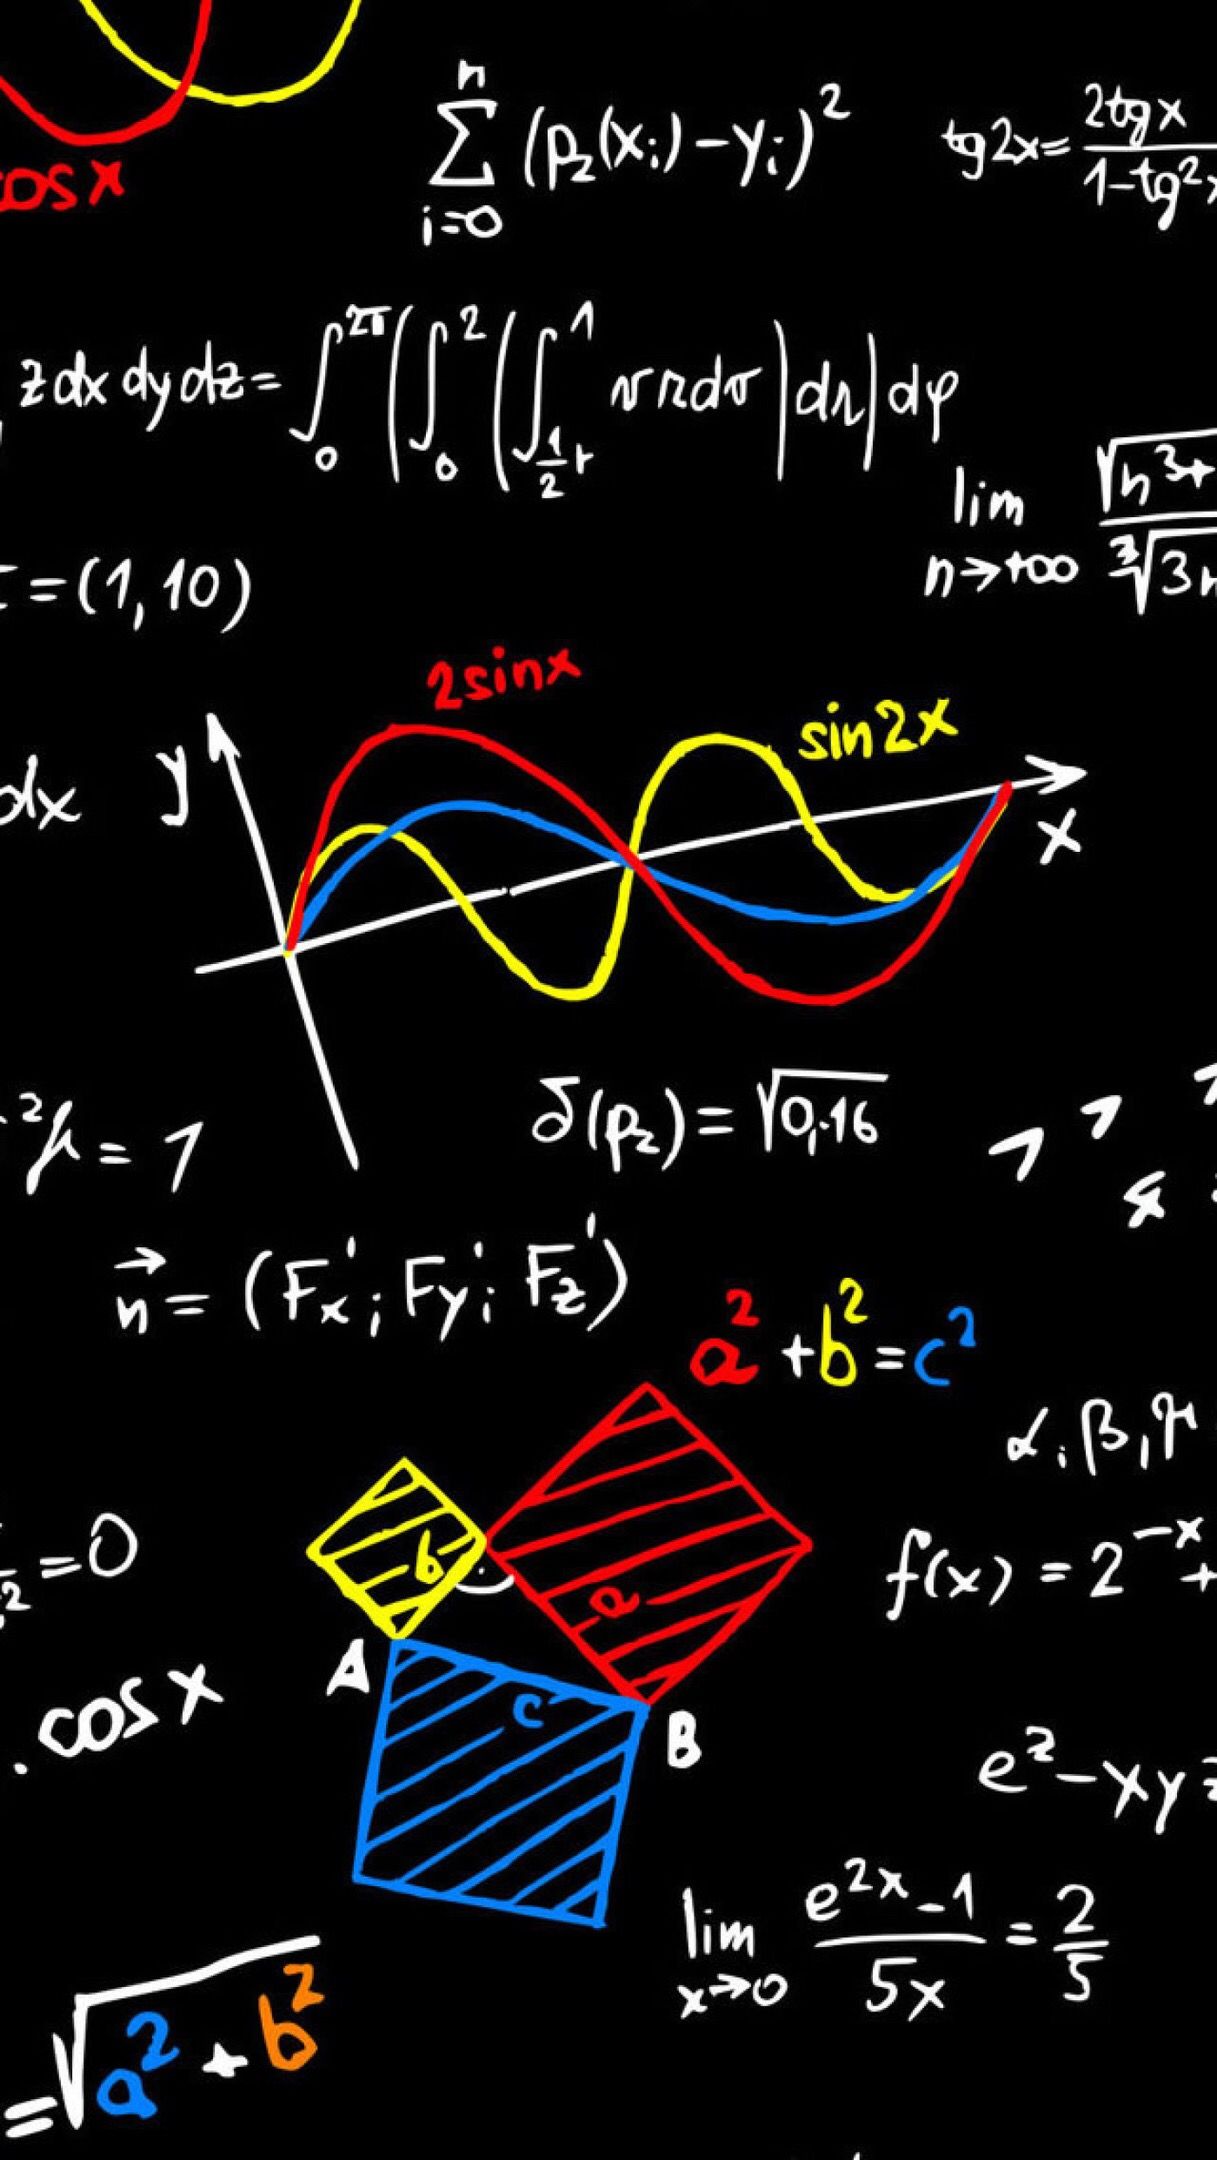 cos x
n
∑ (p₂(xᵢ) - yᵢ)²
i=0
tg2x = 2tgx / 1-tg²x
z dx dy dz = ∫₀^2π (∫₀^2 (∫_½r^1 vrdv | dr | dφ
lim n→+∞ √n³+ / ∛3n
= (1, 10)
2sinx
sin2x
y
dx
x
²γ = 1
δ(p₂) = √0,16
n⃗ = (F'x; F'y; F'z)
a² + b² = c²
α, β, γ
b
=0
f(x) = 2^-x +
a
A
c
. cos x
B
e^z - xyz
lim x→0 e^2x - 1 / 5x = 2/5
= √a² + b²